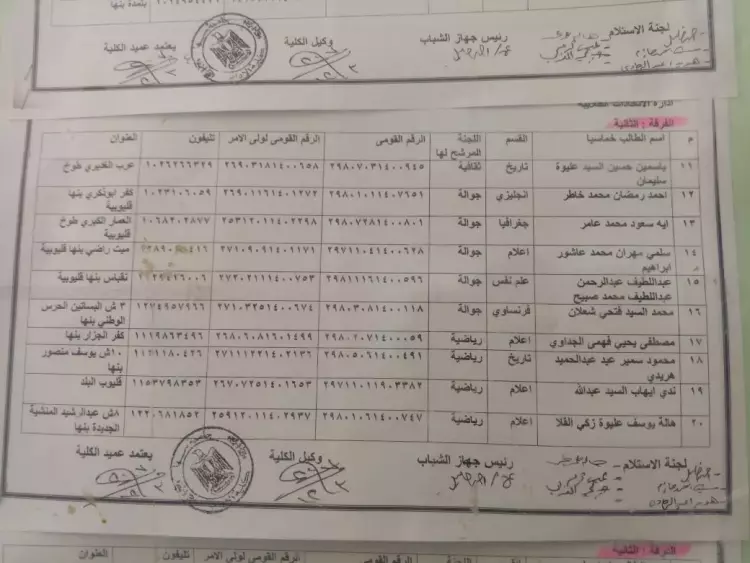 بلدة بنها
لجنة الاستلام
رئيس جهاز الشباب
وكيل الكلية
يعتمد عميد الكلية
الفرقة : الثانية
م اسم الطالب خماسيا القسم اللجنة المرشح لها الرقم القومى الرقم القومى لولى الامر تليفون العنوان
١١ ياسمين حسين السيد عليوة سليمان تاريخ ثقافية ٢٩٨٠٧٠٣١٤٠٠٩٤٥ ٢٦٩٠٣١٨١٤٠٠٦٥٨ ١٠٢٦٢٦٦٣٢٩ عرب الغديري طوخ
١٢ احمد رمضان محمد خاطر انجليزي جوالة ٢٩٨٠١٠١١٤٠٧٦٥١ ٢٦٩٠١١٦١٤٠١٢٧٢ ١٠٢٣١٠٦٠٥٩ كفر ابوذكري بنها قليوبية
١٣ ايه سعود محمد عامر جغرافيا جوالة ٢٩٨٠٧٢٨١٤٠٠٨٠١ ٢٥٣١٢٠١١٤٠٢٢٩٨ ١٠٦٨٢٠٢٨٧٧ العمار الكبري طوخ قليوبية
١٤ سلمي مهران محمد عاشور ابراهيم اعلام جوالة ٢٩٧١١٠٤١٤٠٠٦٢٨ ٢٧١٠٩٠٩١٤٠١١٧١ ميت راضي بنها قليوبية
١٥ عبداللطيف عبدالرحمن عبداللطيف محمد صبيح علم نفس جوالة ٢٩٨١١١٦١٤٠٠٥٩٦ ٢٧٢٠٢١١١٤٠٠٧٥٣ نقباس بنها قليوبية
١٦ محمد السيد فتحي شعلان فرنساوي جوالة ٢٩٨٠٣٠٨١٤٠٠١١٨ ٢٧١٠٣٢٥١٤٠٠٦٧٤ ١٢٧٤٩٥٧٩٦٦ ٣ ش البساتين الحرس الوطني بنها
١٧ مصطفى يحيي فهمى الجداوي اعلام رياضية ٢٩٨٠٢٠٧١٤٠٠٠٥٩ ٢٦٨٠٦٠٨١٦٠١٤٩٩ ١١١٩٨٦٣٤٩٦ كفر الجزار بنها
١٨ محمود سمير عيد عبدالحميد هريدي تاريخ رياضية ٢٩٨٠٥٠٦١٤٠٠٤٩١ ٢٧١١١٢٢١٤٠٢١٣٦ ١٠ش يوسف منصور بنها
١٩ ندي ايهاب السيد عبدالله اعلام رياضية ٢٩٧١١٠١١٩٠٣٣٨٢ ٢٦٧٠٧٢٥١٤٠١٦٥٣ ١١٥٣٧٩٨٣٥٣ قليوب البلد
٢٠ هالة يوسف عليوة زكي الفلا اعلام رياضية ٢٩٨٠١٠٦١٤٠٠٧٤٧ ٢٥٩١٢٠١١٤٠٢٩٣٧ ١٢٢٠٦٨١٨٥٢ ٨ش عبدالرشيد المنشية الجديدة بنها
لجنة الاستلام
رئيس جهاز الشباب
وكيل الكلية
يعتمد عميد الكلية
الفرقة : الثانية
اسم الطالب خماسيا القسم اللجنة الرقم القومى الرقم القومى لولى الامر تليفون العنوان